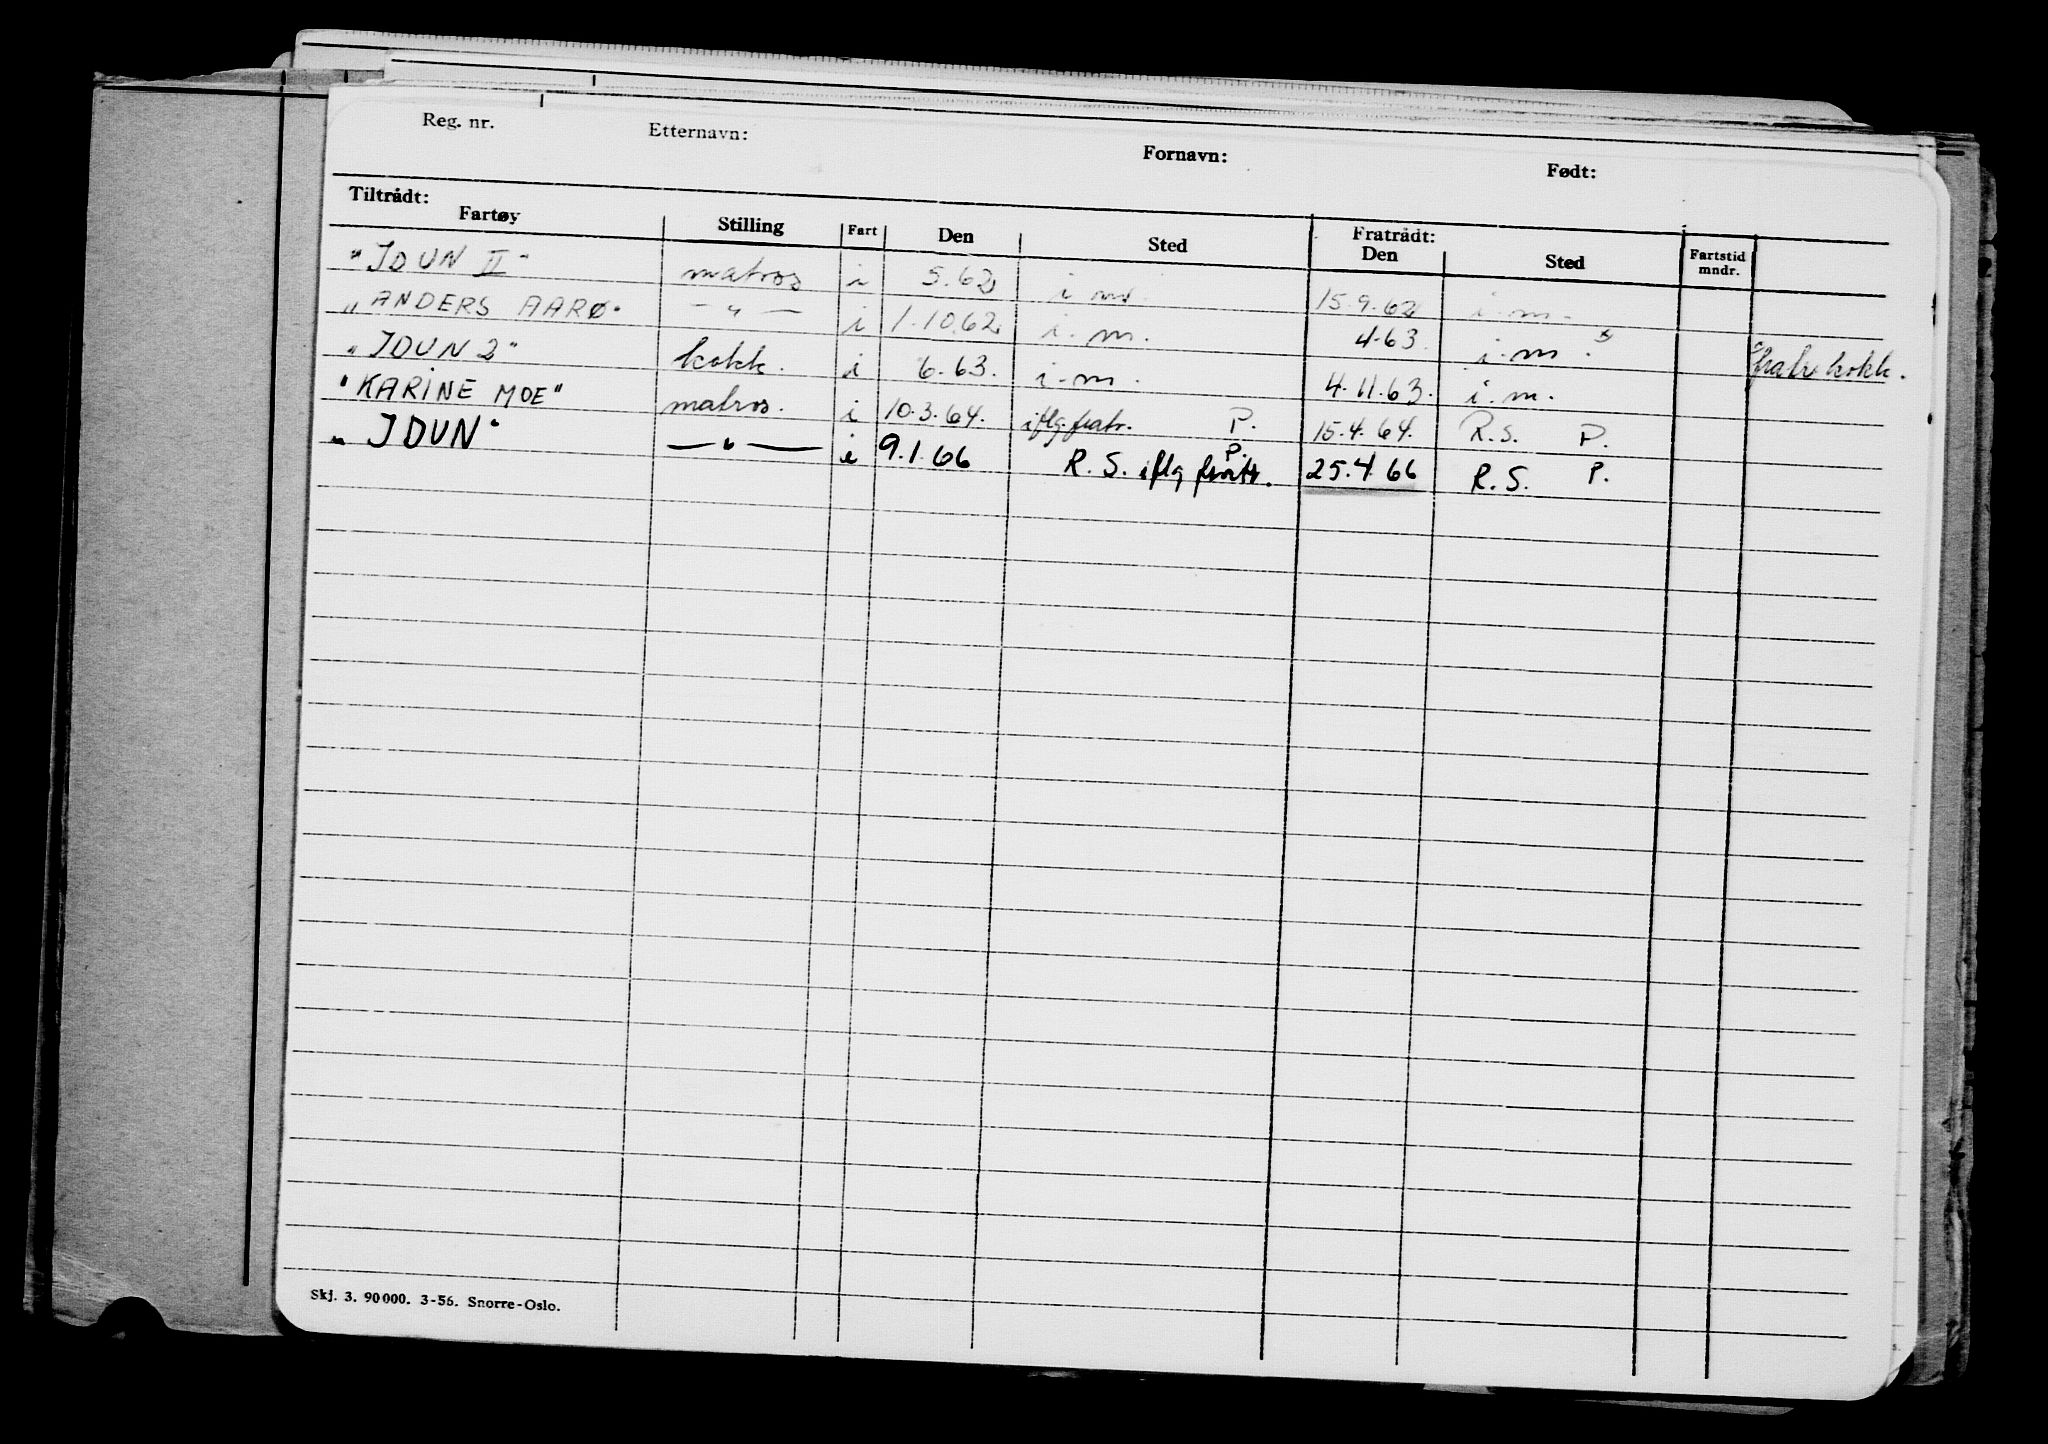 Reg. nr. Etternavn: Fornavn: Født:
Tiltrådt: Fratrådt:
Fartøy Stilling Fart Den Sted Den Sted Fartstid mndr.
"IDUN II" matros i 5.62 i m. 15.9.62 i.m.
"ANDERS AARØ" — " — i 1.10.62 i.m. 4.63 i.m.
"IDUN 2" kokk. i 6.63. i.m. 4.11.63. i.m. fratr kokk.
"KARINE MOE" matros. i 10.3.64. iflg. fratr. P. 15.4.64. R.S. P.
"IDUN" — " — i 9.1.66 R.S. iflg fratr. P. 25.4.66 R.S. P.
Skj. 3. 90000. 3-56. Snorre-Oslo.